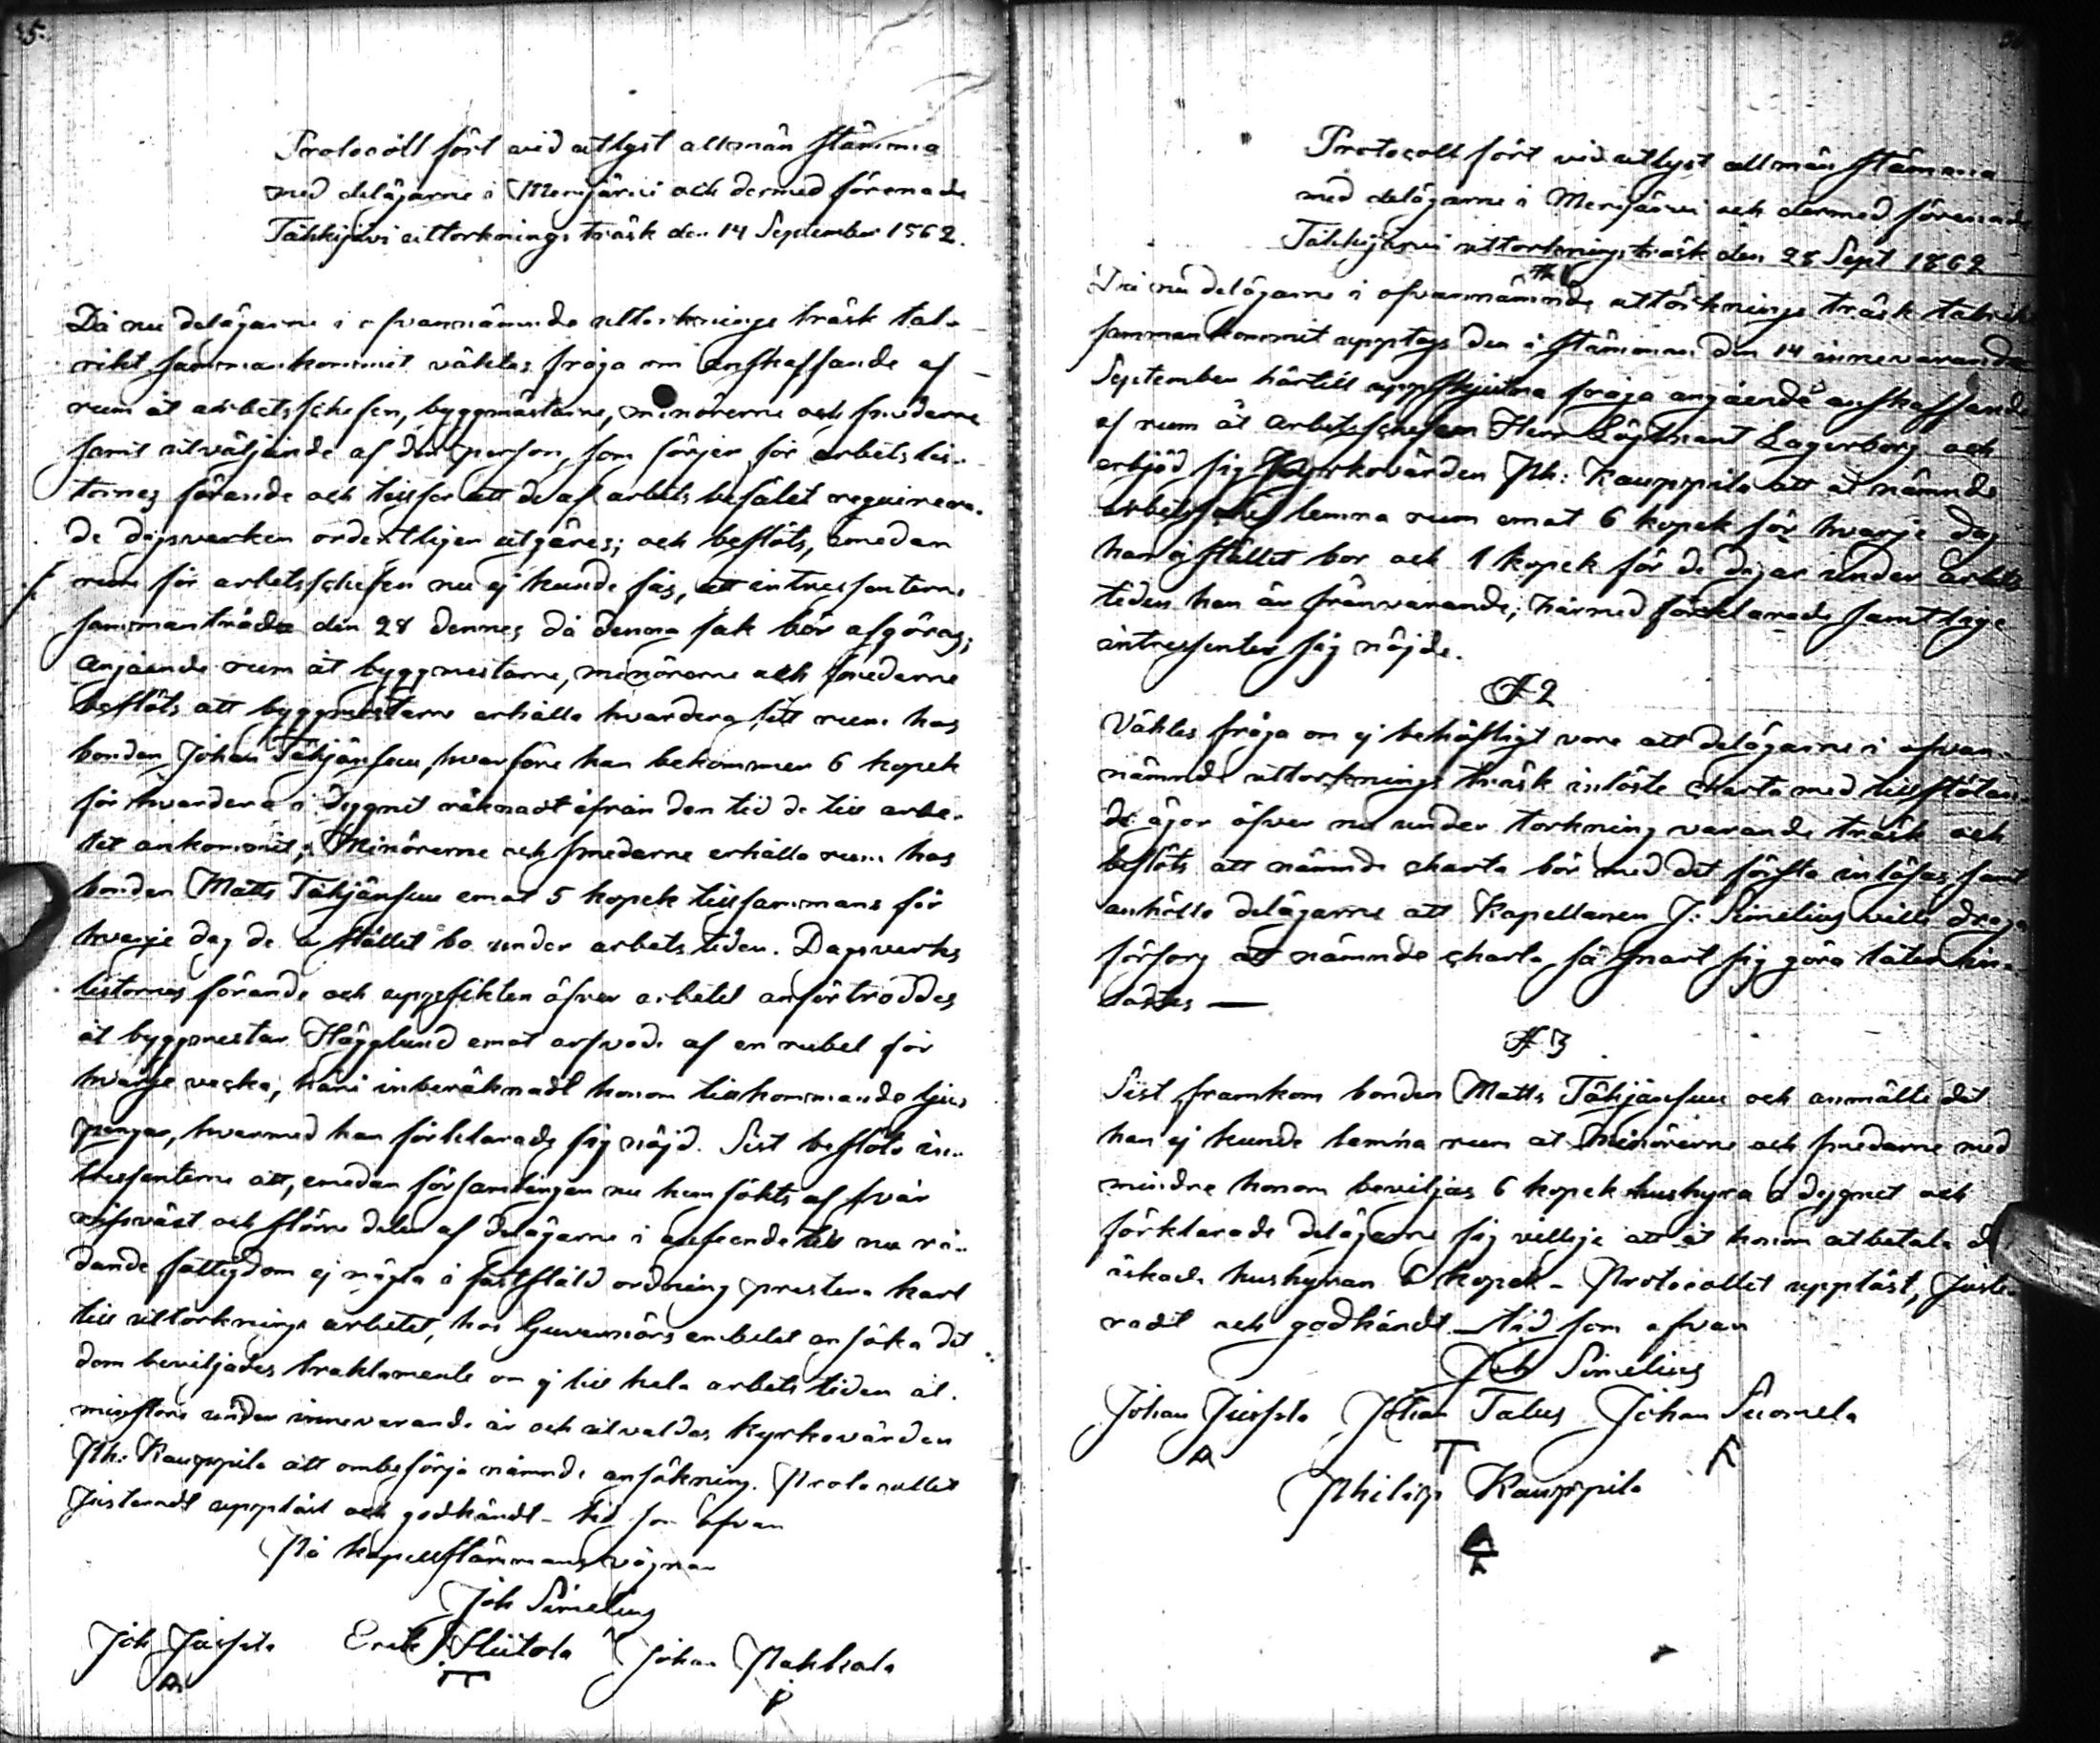 5.
Protocoll fört vid utlyst allmän stämma
med delägarne i Merijärvi och dermed förenade
Tähkijärvi uttorknings träsk den 14 September 1862.
Då nu delägarne i ofvannämnde uttorknings träsk tal-
rikt sammankommit väktes fråga om anskaffande af
rum åt arbetschefen, byggmästarne, minörerne och smederne
samt utväljande af den person, som sörjer för arbetslis-
tornes förande och tillser att de af arbets befälet requirera-
de dagsverken ordentligen utgöras; och beslöts, emedan
rum för arbetschefen nu ej kunde fås, att intressenterne
sammanträda den 28 dennes då denna sak bör afgöras;
angående rum åt byggmestarne, minörerne och smederne
beslöts att byggmestarne erhålla hvardera sitt rum hos
bonden Johan Tähjänsuu, hvarföre han bekommer 6 kopek
för hvardera i dygnet räknadt ifrån den tid de till arbe-
tet ankommit; Minörerne och smederne erhålla rum hos
bonden Matts Tähjänsuu emot 5 kopek tillsammans för
hvarje dag de å stället bo under arbets tiden. Dagsverks
listornes förande och uppsikten öfver arbetet anförtroddes
åt byggmestar Hägglund emot arfvode af en rubel för
hvarje vecka, häri inberäknadt honom tillkommande ljus
pengar, hvarmed han förklarade sig nöjd. Sist beslöto in-
tressenterne att, emedan församlingen nu hemsökts af svår
missväxt och större delen af delägarne i anseende till nu rå-
dande fattigdom ej mägta i fastställd ordning prestera karl
till uttorknings arbetet, hos Guvernörs embetet ansöka det
dem beviljades traktamente om ej till hela arbets tiden åt-
minstone under innevarande år och utvaldes kyrkovärden
Ph: Kauppila att ombesörja nämnde ansökning. Protocollet
Justeradt uppläst och godkändt – tid som ofvan
På kapellstämmans vägnar
Joh Simelius
Joh Jussila Erik Hiitola Johan Pahkala
Protocoll fört vid utlyst allmän stämma
med delägarne i Merijärvi och dermed förenade
Tähkijärvi uttorknings träsk den 28 Sept 1862
§ 1
Då nu delägarne i ofvannämnde uttorknings träsk talrikt
sammankommit upptogs den å stämman den 14 innevarande
September härtill uppskjutna fråga angående anskaffande
af rum åt arbetschefen Herr Löjtnant Lagerborg och
erbjöd sig Kyrkovärden Ph: Kauppila att åt nämnde
arbetschef lemna rum emot 6 kopek för hvarje dag
han å stället bor och 1 kopek för de dagar under arbets
tiden han är frånvarande; härmed förklarade samtlige
intressenter sig nöjde.
§ 2
Väktes fråga om ej behöfligt vore att delägarne i ofvan-
nämnde uttorknings träsk inlöste charta med tillstötan-
de ägor öfver nu under torkning varande träsk och
beslöts att nämnde charta bör med det första inlösas samt
anhöllo delägarne att Kapellanen J: Simelius ville draga
försorg att nämnde charta så snart sig göra låter in-
löstes —
§ 3
Sist framkom bonden Matts Tähjänsuu och anmälte det
han ej kunde lemna rum åt Minörerne och smederne med
mindre honom beviljas 6 kopek hushyra i dygnet och
förklarade delägarne sig villige att åt honom utbetala d
äskade hushyran 6 kopek – Protocollet uppläst, Juste-
radt och godkändt – tid som ofvan
Joh Simelius
Johan Jussila Johan Talus Johan Suomela
Philip Kauppila